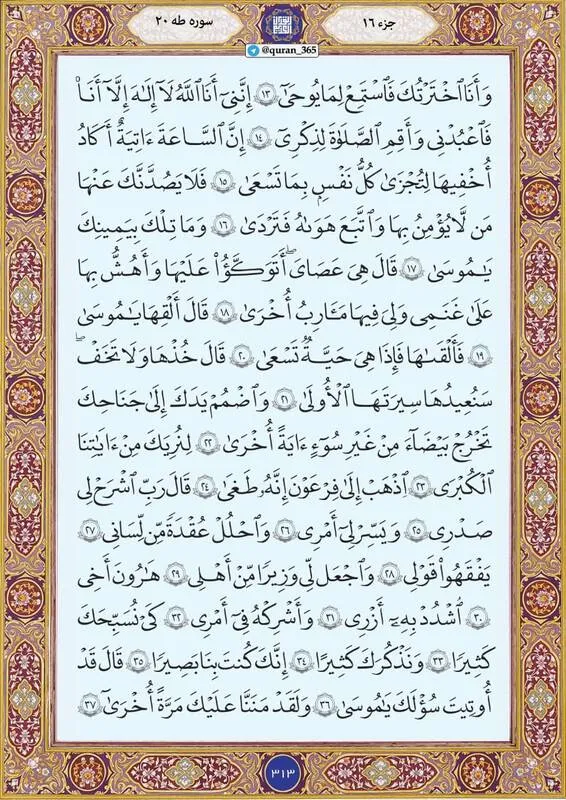 جزء ۱۶
سوره طه ۲۰
@quran_365
وَأَنَا ٱخْتَرْتُكَ فَٱسْتَمِعْ لِمَا يُوحَىٰٓ ۝١٣ إِنَّنِىٓ أَنَا ٱللَّهُ لَآ إِلَٰهَ إِلَّآ أَنَا۠
فَٱعْبُدْنِى وَأَقِمِ ٱلصَّلَوٰةَ لِذِكْرِىٓ ۝١٤ إِنَّ ٱلسَّاعَةَ ءَاتِيَةٌ أَكَادُ
أُخْفِيهَا لِتُجْزَىٰ كُلُّ نَفْسٍۭ بِمَا تَسْعَىٰ ۝١٥ فَلَا يَصُدَّنَّكَ عَنْهَا
مَن لَّا يُؤْمِنُ بِهَا وَٱتَّبَعَ هَوَىٰهُ فَتَرْدَىٰ ۝١٦ وَمَا تِلْكَ بِيَمِينِكَ
يَٰمُوسَىٰ ۝١٧ قَالَ هِىَ عَصَاىَ أَتَوَكَّؤُا۟ عَلَيْهَا وَأَهُشُّ بِهَا
عَلَىٰ غَنَمِى وَلِىَ فِيهَا مَـَٔارِبُ أُخْرَىٰ ۝١٨ قَالَ أَلْقِهَا يَٰمُوسَىٰ
۝١٩ فَأَلْقَىٰهَا فَإِذَا هِىَ حَيَّةٌ تَسْعَىٰ ۝٢٠ قَالَ خُذْهَا وَلَا تَخَفْ ۖ
سَنُعِيدُهَا سِيرَتَهَا ٱلْأُولَىٰ ۝٢١ وَٱضْمُمْ يَدَكَ إِلَىٰ جَنَاحِكَ
تَخْرُجْ بَيْضَآءَ مِنْ غَيْرِ سُوٓءٍ ءَايَةً أُخْرَىٰ ۝٢٢ لِنُرِيَكَ مِنْ ءَايَٰتِنَا
ٱلْكُبْرَى ۝٢٣ ٱذْهَبْ إِلَىٰ فِرْعَوْنَ إِنَّهُۥ طَغَىٰ ۝٢٤ قَالَ رَبِّ ٱشْرَحْ لِى
صَدْرِى ۝٢٥ وَيَسِّرْ لِىٓ أَمْرِى ۝٢٦ وَٱحْلُلْ عُقْدَةً مِّن لِّسَانِى ۝٢٧
يَفْقَهُوا۟ قَوْلِى ۝٢٨ وَٱجْعَل لِّى وَزِيرًا مِّنْ أَهْلِى ۝٢٩ هَٰرُونَ أَخِى
۝٣٠ ٱشْدُدْ بِهِۦٓ أَزْرِى ۝٣١ وَأَشْرِكْهُ فِىٓ أَمْرِى ۝٣٢ كَىْ نُسَبِّحَكَ
كَثِيرًا ۝٣٣ وَنَذْكُرَكَ كَثِيرًا ۝٣٤ إِنَّكَ كُنتَ بِنَا بَصِيرًا ۝٣٥ قَالَ قَدْ
أُوتِيتَ سُؤْلَكَ يَٰمُوسَىٰ ۝٣٦ وَلَقَدْ مَنَنَّا عَلَيْكَ مَرَّةً أُخْرَىٰٓ ۝٣٧
۳۱۳